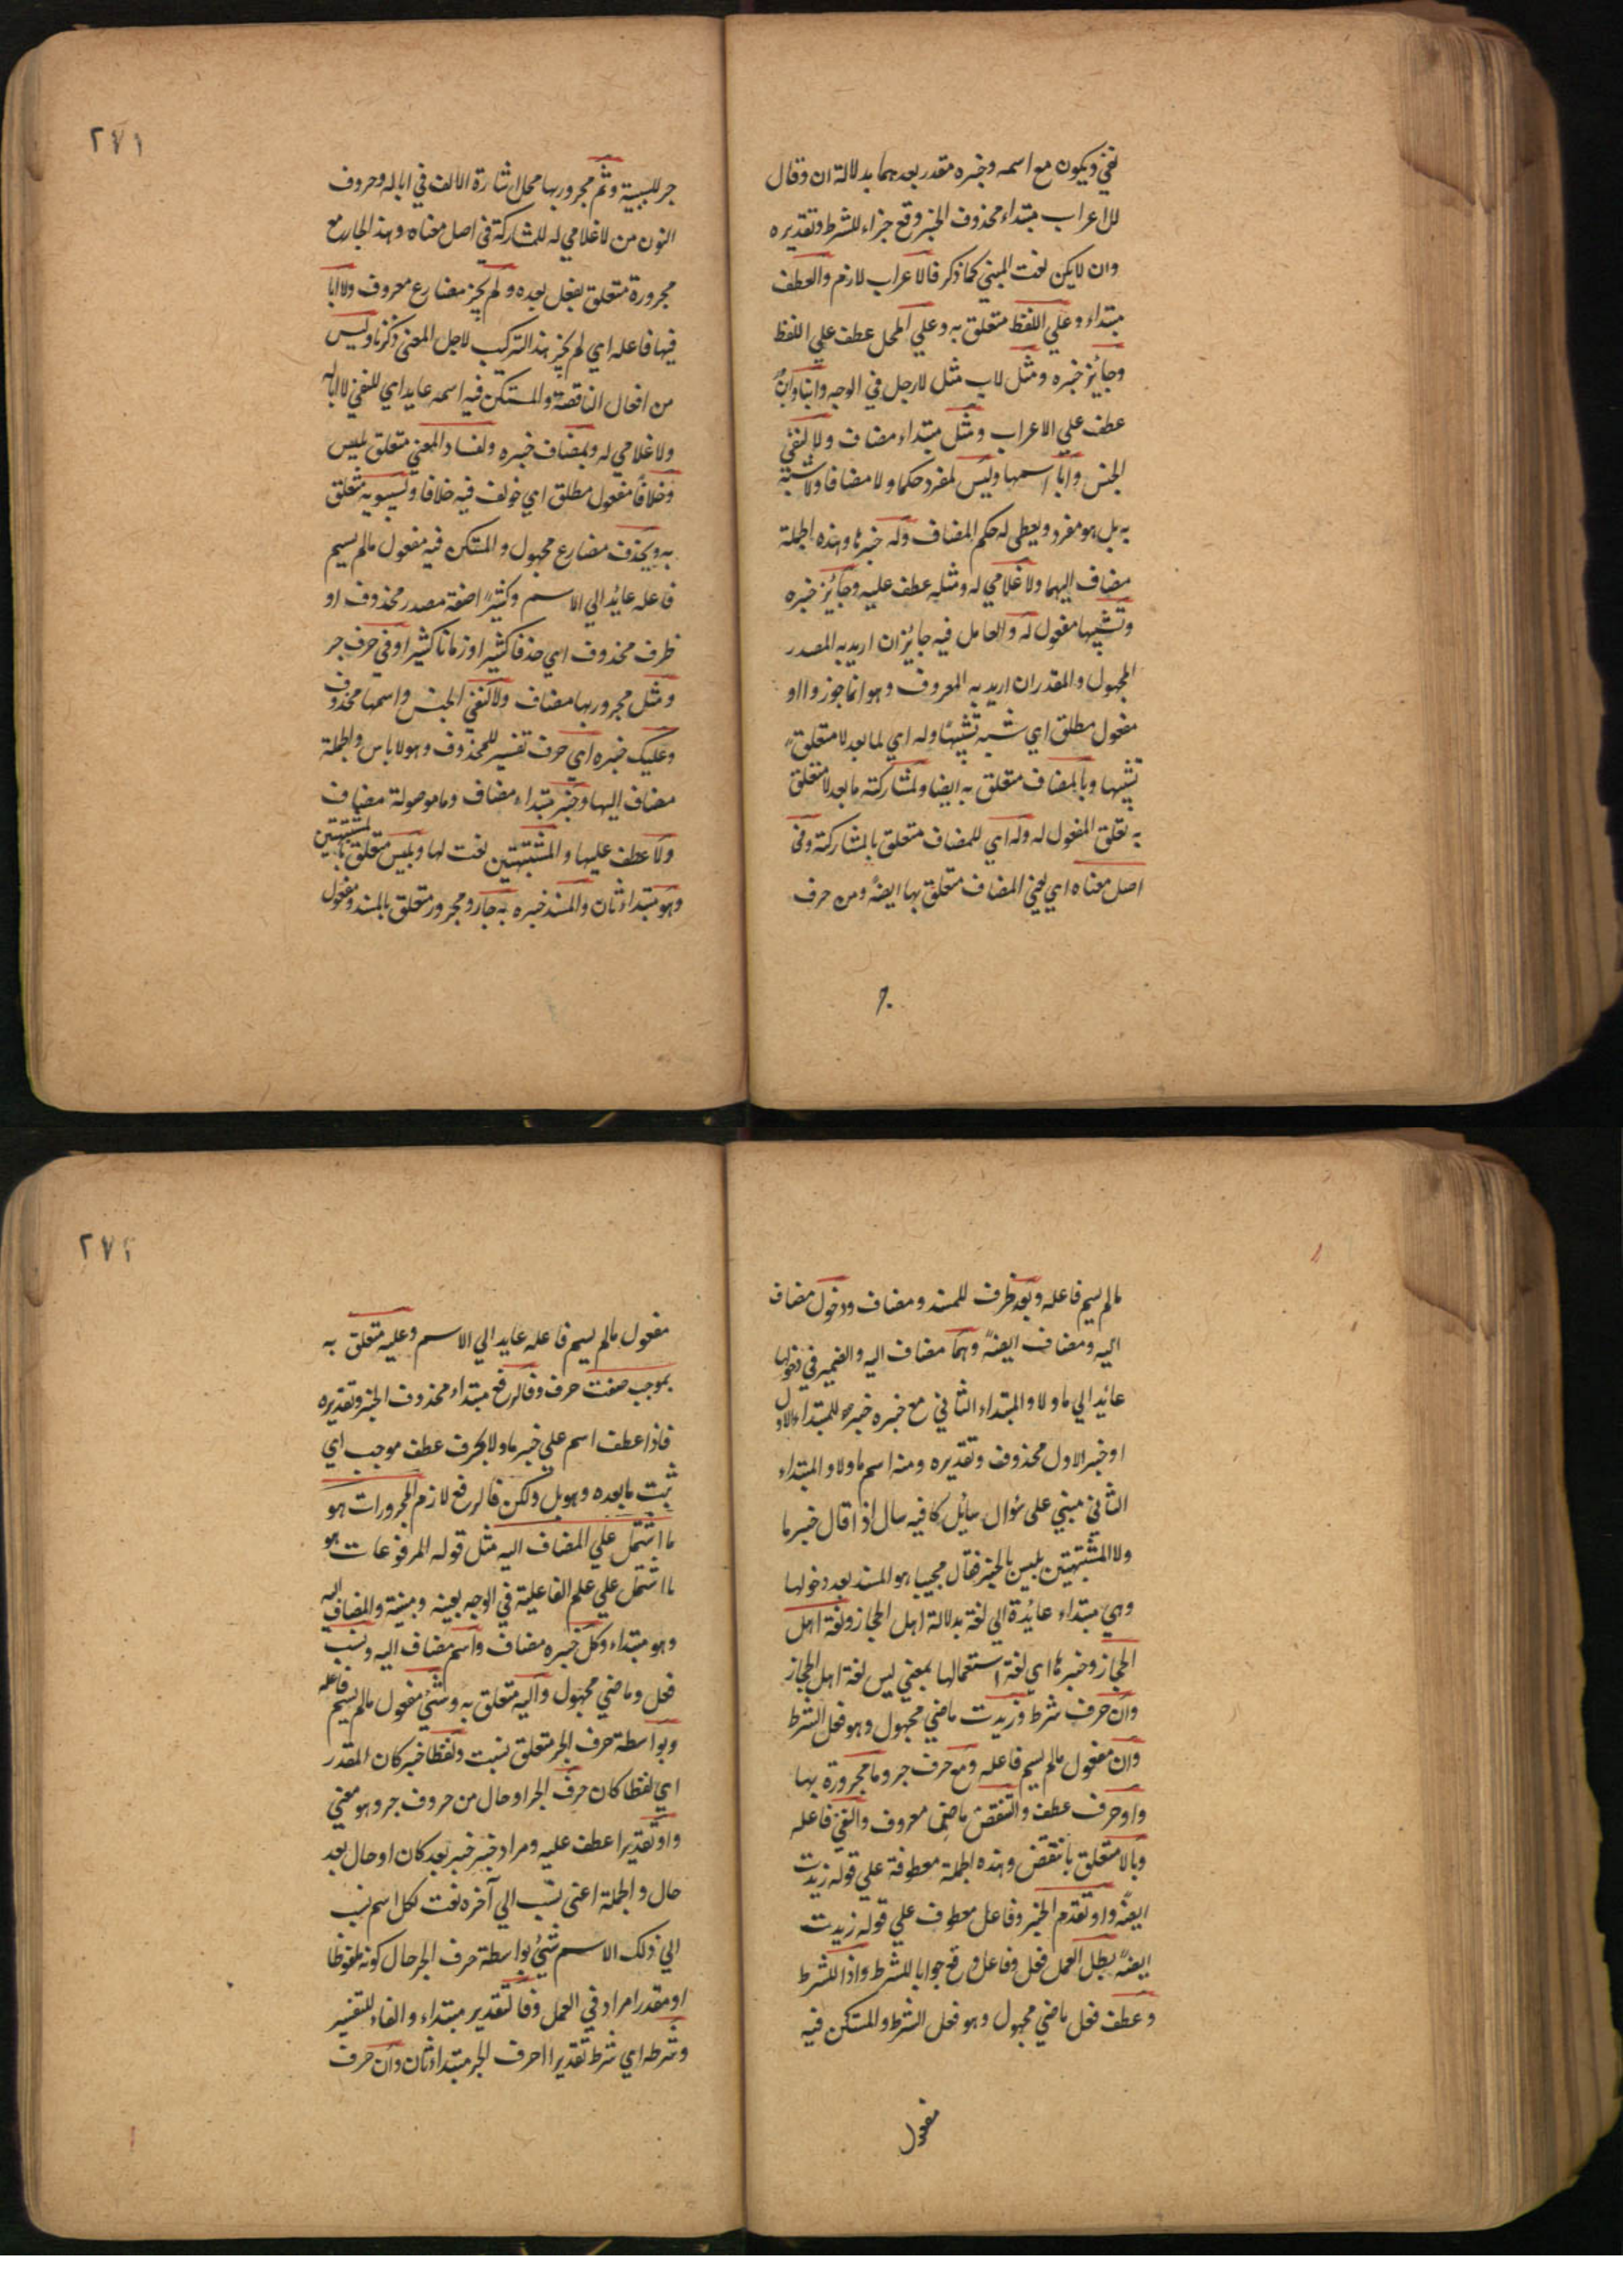 نفي ويكون مع اسمه وخبره مقدر بعدهما بدلالة ان وقال
لالاعراب مبتداء محذوف الخبر وقع جزاء للشرط وتقديره
وان لايكن نعت المبني كما ذكر فالاعراب لازم والعطف
مبتداء وعلي اللفظ متعلق به وعلي المحل عطف علي اللفظ
وجائز خبره ومثل لاب مثل لارجل في الوجه وابنا وابن
عطف علي الاعراب ومثل مبتداء مضاف ولا لنفي
الجنس وابا اسمها وليس لمفرد حكما ولا مضافا ولا شبة
به بل هو مفرد ويعطي له حكم المضاف وله خبرها وهذه الجملة
مضاف اليها ولا غلامي له ومثله عطف عليه وجائز خبره
وتشبيها مفعول له والعامل فيه جايز ان اريد به المصدر
المجهول والمقدر ان اريد به المعروف وهو انما جوزوا او
مفعول مطلق اي شبه تشبيها وله اي لما بعد لا متعلق
تشبيها وبالمضاف متعلق به ايضا ولمشاركته ما بعد لا متعلق
به تعلق المفعول له وله اي للمضاف متعلق بالمشاركة وفي
اصل معناه اي يعني المضاف متعلق بها ايضه ومن حرف
جر
٢٧١
جر للسببية وثم مجرور بها محل اشارة الالف في اباله وحروف
النون من لاغلامي له للمشاركة في اصل معناه وهذ الجار مع
مجروره متعلق بفعل بعده ولم يجز مضارع معروف ولا ابا
فيها فاعله اي لم يجز هذ التركيب لاجل المعني ذكرنا وليس
من افعال الناقصة والمستكن فيه اسمه عايد اي للنفي لا اباله
ولا غلامي له وبمضاف خبره ولفساد المعني متعلق بليس
وخلافا مفعول مطلق اي خولف فيه خلافا ولسيبويه متعلق
به ويحذف مضارع مجهول والمستكن فيه مفعول مالم يسم
فاعله عائد الي الاسم وكثيرا صفة مصدر محذوف او
ظرف محذوف اي حذفا كثيرا او زمانا كثيرا وفي حرف جر
ومثل مجرور بها مضاف ولا لنفي الجنس واسمها محذوف
وعليك خبره اي حرف تفسير للمحذوف وهو لاباس والجملة
مضاف اليها وخبر مبتداء مضاف وما موصولة مضاف
ولا عطف عليها والمشبهتين نعت لها وبليس متعلق بالمشبهتين
وهو مبتداء ثان والمسند خبره به جار ومجرور متعلق بالمسند ومفعول
مالم يسم فاعله وبعد ظرف للمسند ومضاف ودخول مضاف
اليه ومضاف ايضه وهما مضاف اليه والضمير في دخولها
عائد الي ما ولا والمبتداء الثاني مع خبره خبر للمبتداء الاول
او خبر الاول محذوف وتقديره ومنه اسم ما ولا والمبتداء
الثاني مبني علي سؤال سائل كانه سال اذا قال خبر ما
ولا المشبهتين بليس بالخبر فقال مجيبا هو المسند بعد دخولها
وهي مبتداء عائدة الي لغة بدلالة اهل الحجاز ولغة اهل
الحجاز وخبرها اي لغة استعمالها بمعني ليس لغة اهل الحجاز
وان حرف شرط وزيدت ماضي مجهول وهو فعل الشرط
وان مفعول مالم يسم فاعله ومع حرف جر وما مجرورة بها
واو حرف عطف وانتقض ماضي معروف والنفي فاعله
وبالا متعلق بانتقض وهذه الجملة معطوفة علي قوله زيدت
ايضه واو تقدم الخبر وفاعل معطوف علي قوله زيدت
ايضه بطل العمل فعل وفاعل وقع جوابا للشرط واذا للشرط
وعطف فعل ماضي مجهول وهو فعل الشرط والمستكن فيه
مفعول
٢٧٢
مفعول مالم يسم فاعله عايد الي الاسم وعليه متعلق به
بموجب صفت حرف وفالرفع مبتداء محذوف الخبر وتقديره
فاذا عطف اسم علي خبر ما ولا بحرف عطف موجب اي
ثبت ما بعده وهو بل ولكن فالرفع لازم المجرورات هو
ما اشتمل علي المضاف اليه مثل قوله المرفوعات هو
ما اشتمل علي علم الفاعلية في الوجه بعينه وبينته والمضاف اليه
وهو مبتداء وكل خبره مضاف واسم مضاف اليه ونسب
فعل وماضي مجهول واليه متعلق به وشيء مفعول مالم يسم فاعله
وبواسطة حرف الجر متعلق بنسبت ولفظا خبر كان المقدر
اي لفظا كان حرف الجر او حال من حروف جر وهو معني
واو تقديرا عطف عليه ومراد خبر خبر بعد كان او حال بعد
حال والجملة اعني نسب الي آخره نعت لكل اسم نسب
الي ذلك الاسم شيء بواسطة حرف الجر حال كونه ملفوظا
او مقدرا مراد في العمل وفالتقدير مبتداء والفاء للتفسير
وشرطه اي شرط تقديرا حرف الجر مبتداء ثان وان حرف